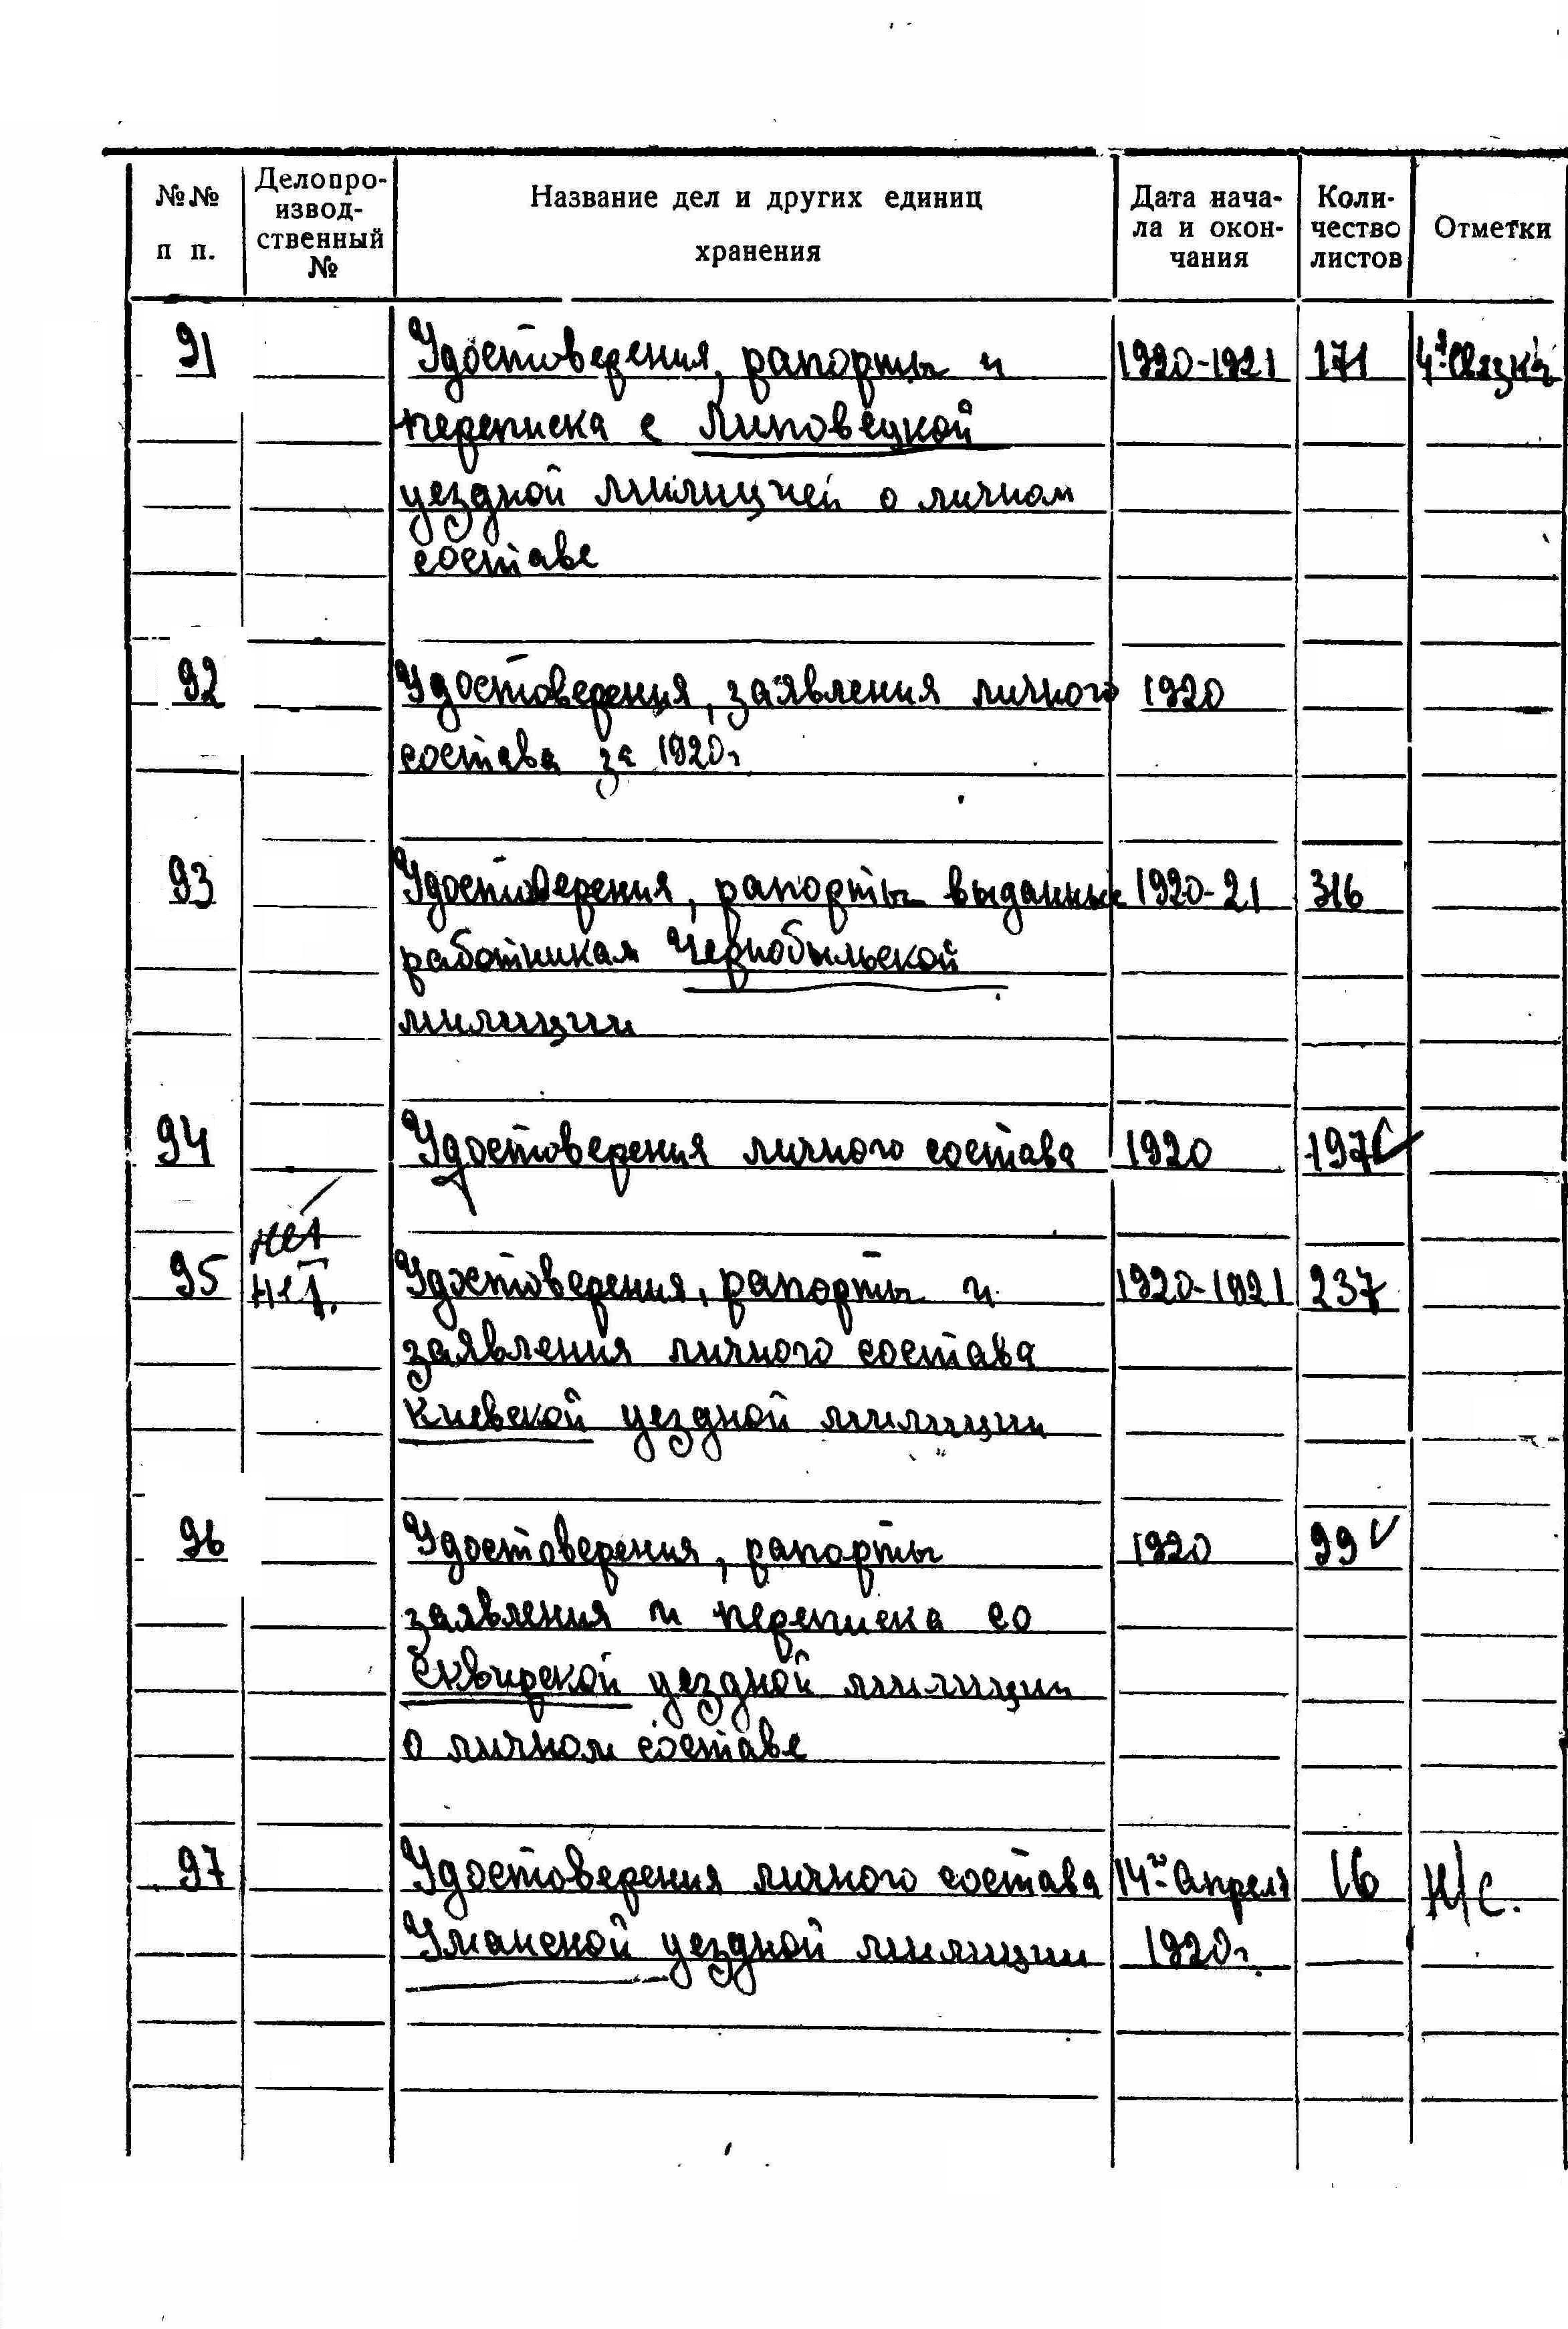 №№ п п.
Делопро-
извод-
ственный
№
Название дел и других единиц
хранения
Дата нача-
ла и окон-
чания
Коли-
чество
листов
Отметки
91 Удостоверения, рапорты и 1920-1921 171
переписка с Липовецкой
уездной милицией о личном
составе
92 Удостоверения, заявления личного 1920
состава за 1920г
93 Удостоверения, рапорты выданные 1920-21 316
работникам Чернобыльской
милиции
94 Удостоверения личного состава 1920 197
нет
95 нет. Удостоверения, рапорты и 1920-1921 237
заявления личного состава
Киевской уездной милиции
96 Удостоверения, рапорты 1920 99 V
заявления и переписка со
Сквирской уездной милиции
о личном составе
97 Удостоверения личного состава 14го Апреля 16 Н/с.
Уманской уездной милиции 1920г.